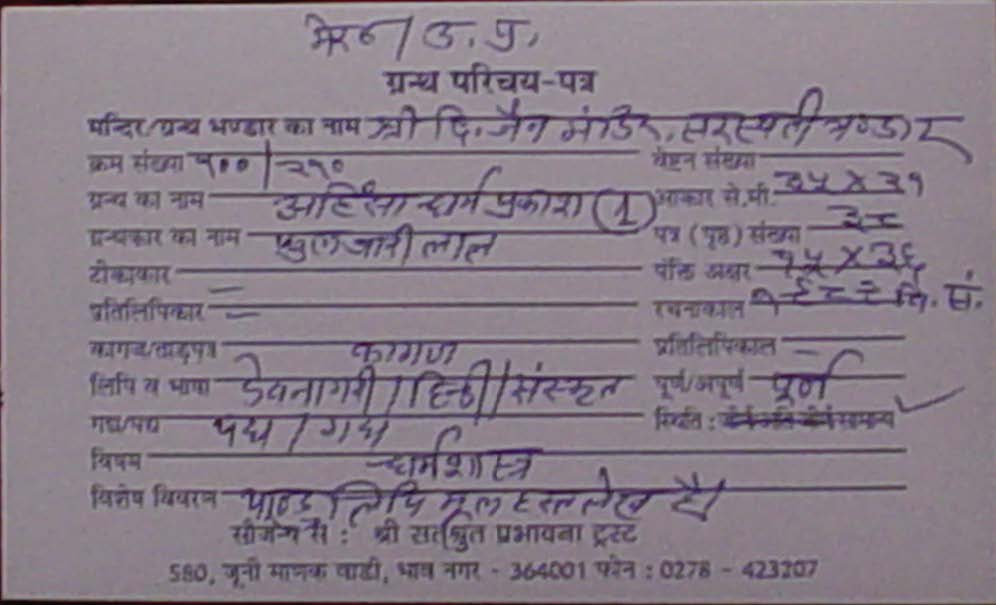 मेरठ / उ. प्र.
ग्रन्थ परिचय-पत्र
मन्दिर/ग्रन्थ भण्डार का नाम श्री दि. जैन मंदिर, सरस्वती भण्डार
क्रम संख्या ५०० / २९० वेष्टन संख्या
ग्रन्थ का नाम अहिंसा धर्म प्रकाश (1) आकार से.मी. ३५ X २१
ग्रन्थकार का नाम फुलजारी लाल पत्र (पृष्ठ) संख्या ३८
टीकाकार पंक्ति अक्षर १५ X ३६
प्रतिलिपिकार रचनाकाल वि. सं.
कागज/ताड़पत्र कागज प्रतिलिपिकाल
लिपि व भाषा देवनागरी / हिन्दी / संस्कृत पूर्ण/अपूर्ण पूर्ण
गद्य/पद्य पद्य / गद्य स्थिति : सामान्य
विषय धर्मशास्त्र
विशेष विवरण पाण्डुलिपि मूल हस्तलेख है।
सौजन्य से : श्री सत्श्रुत प्रभावना ट्रस्ट
580, जूनी माणक वाडी, भाव नगर - 364001 फोन : 0278 - 423207